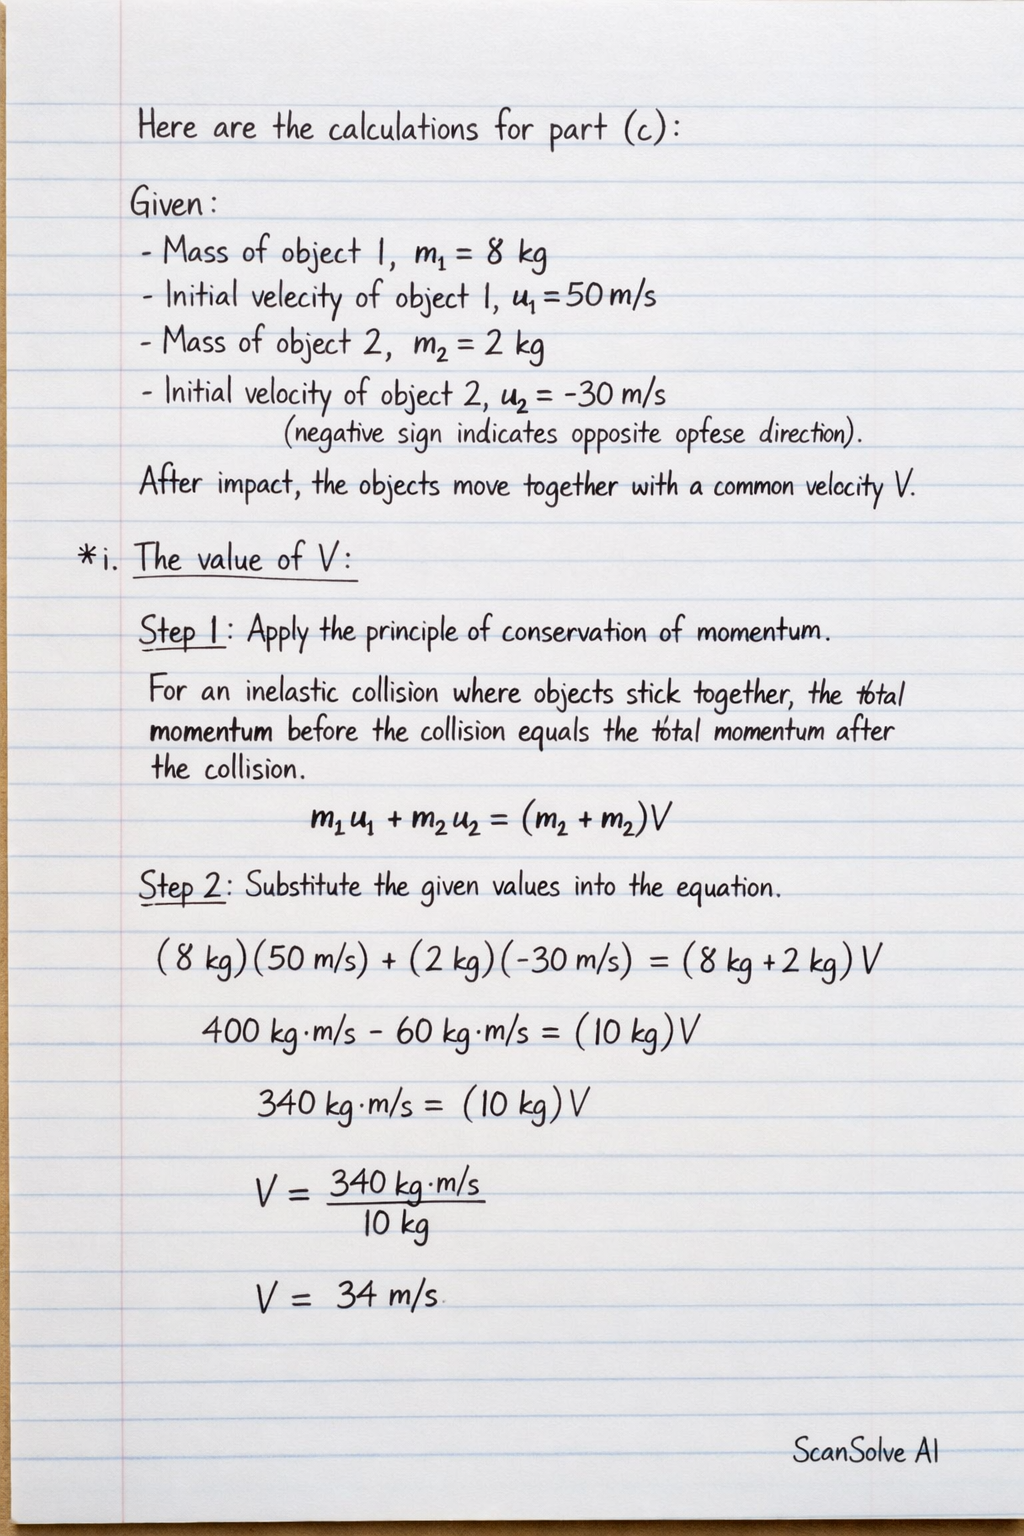 Here are the calculations for part (c):
Given:
- Mass of object 1, m₁ = 8 kg
- Initial velecity of object 1, u₁ = 50 m/s
- Mass of object 2, m₂ = 2 kg
- Initial velocity of object 2, u₂ = -30 m/s
(negative sign indicates opposite opfese direction).
After impact, the objects move together with a common velocity V.
*i. The value of V:
Step 1: Apply the principle of conservation of momentum.
For an inelastic collision where objects stick together, the total
momentum before the collision equals the total momentum after
the collision.
m₁u₁ + m₂u₂ = (m₂ + m₂)V
Step 2: Substitute the given values into the equation.
(8 kg)(50 m/s) + (2 kg)(-30 m/s) = (8 kg + 2 kg) V
400 kg·m/s - 60 kg·m/s = (10 kg)V
340 kg·m/s = (10 kg)V
V = 340 kg·m/s
10 kg
V = 34 m/s.
ScanSolve AI